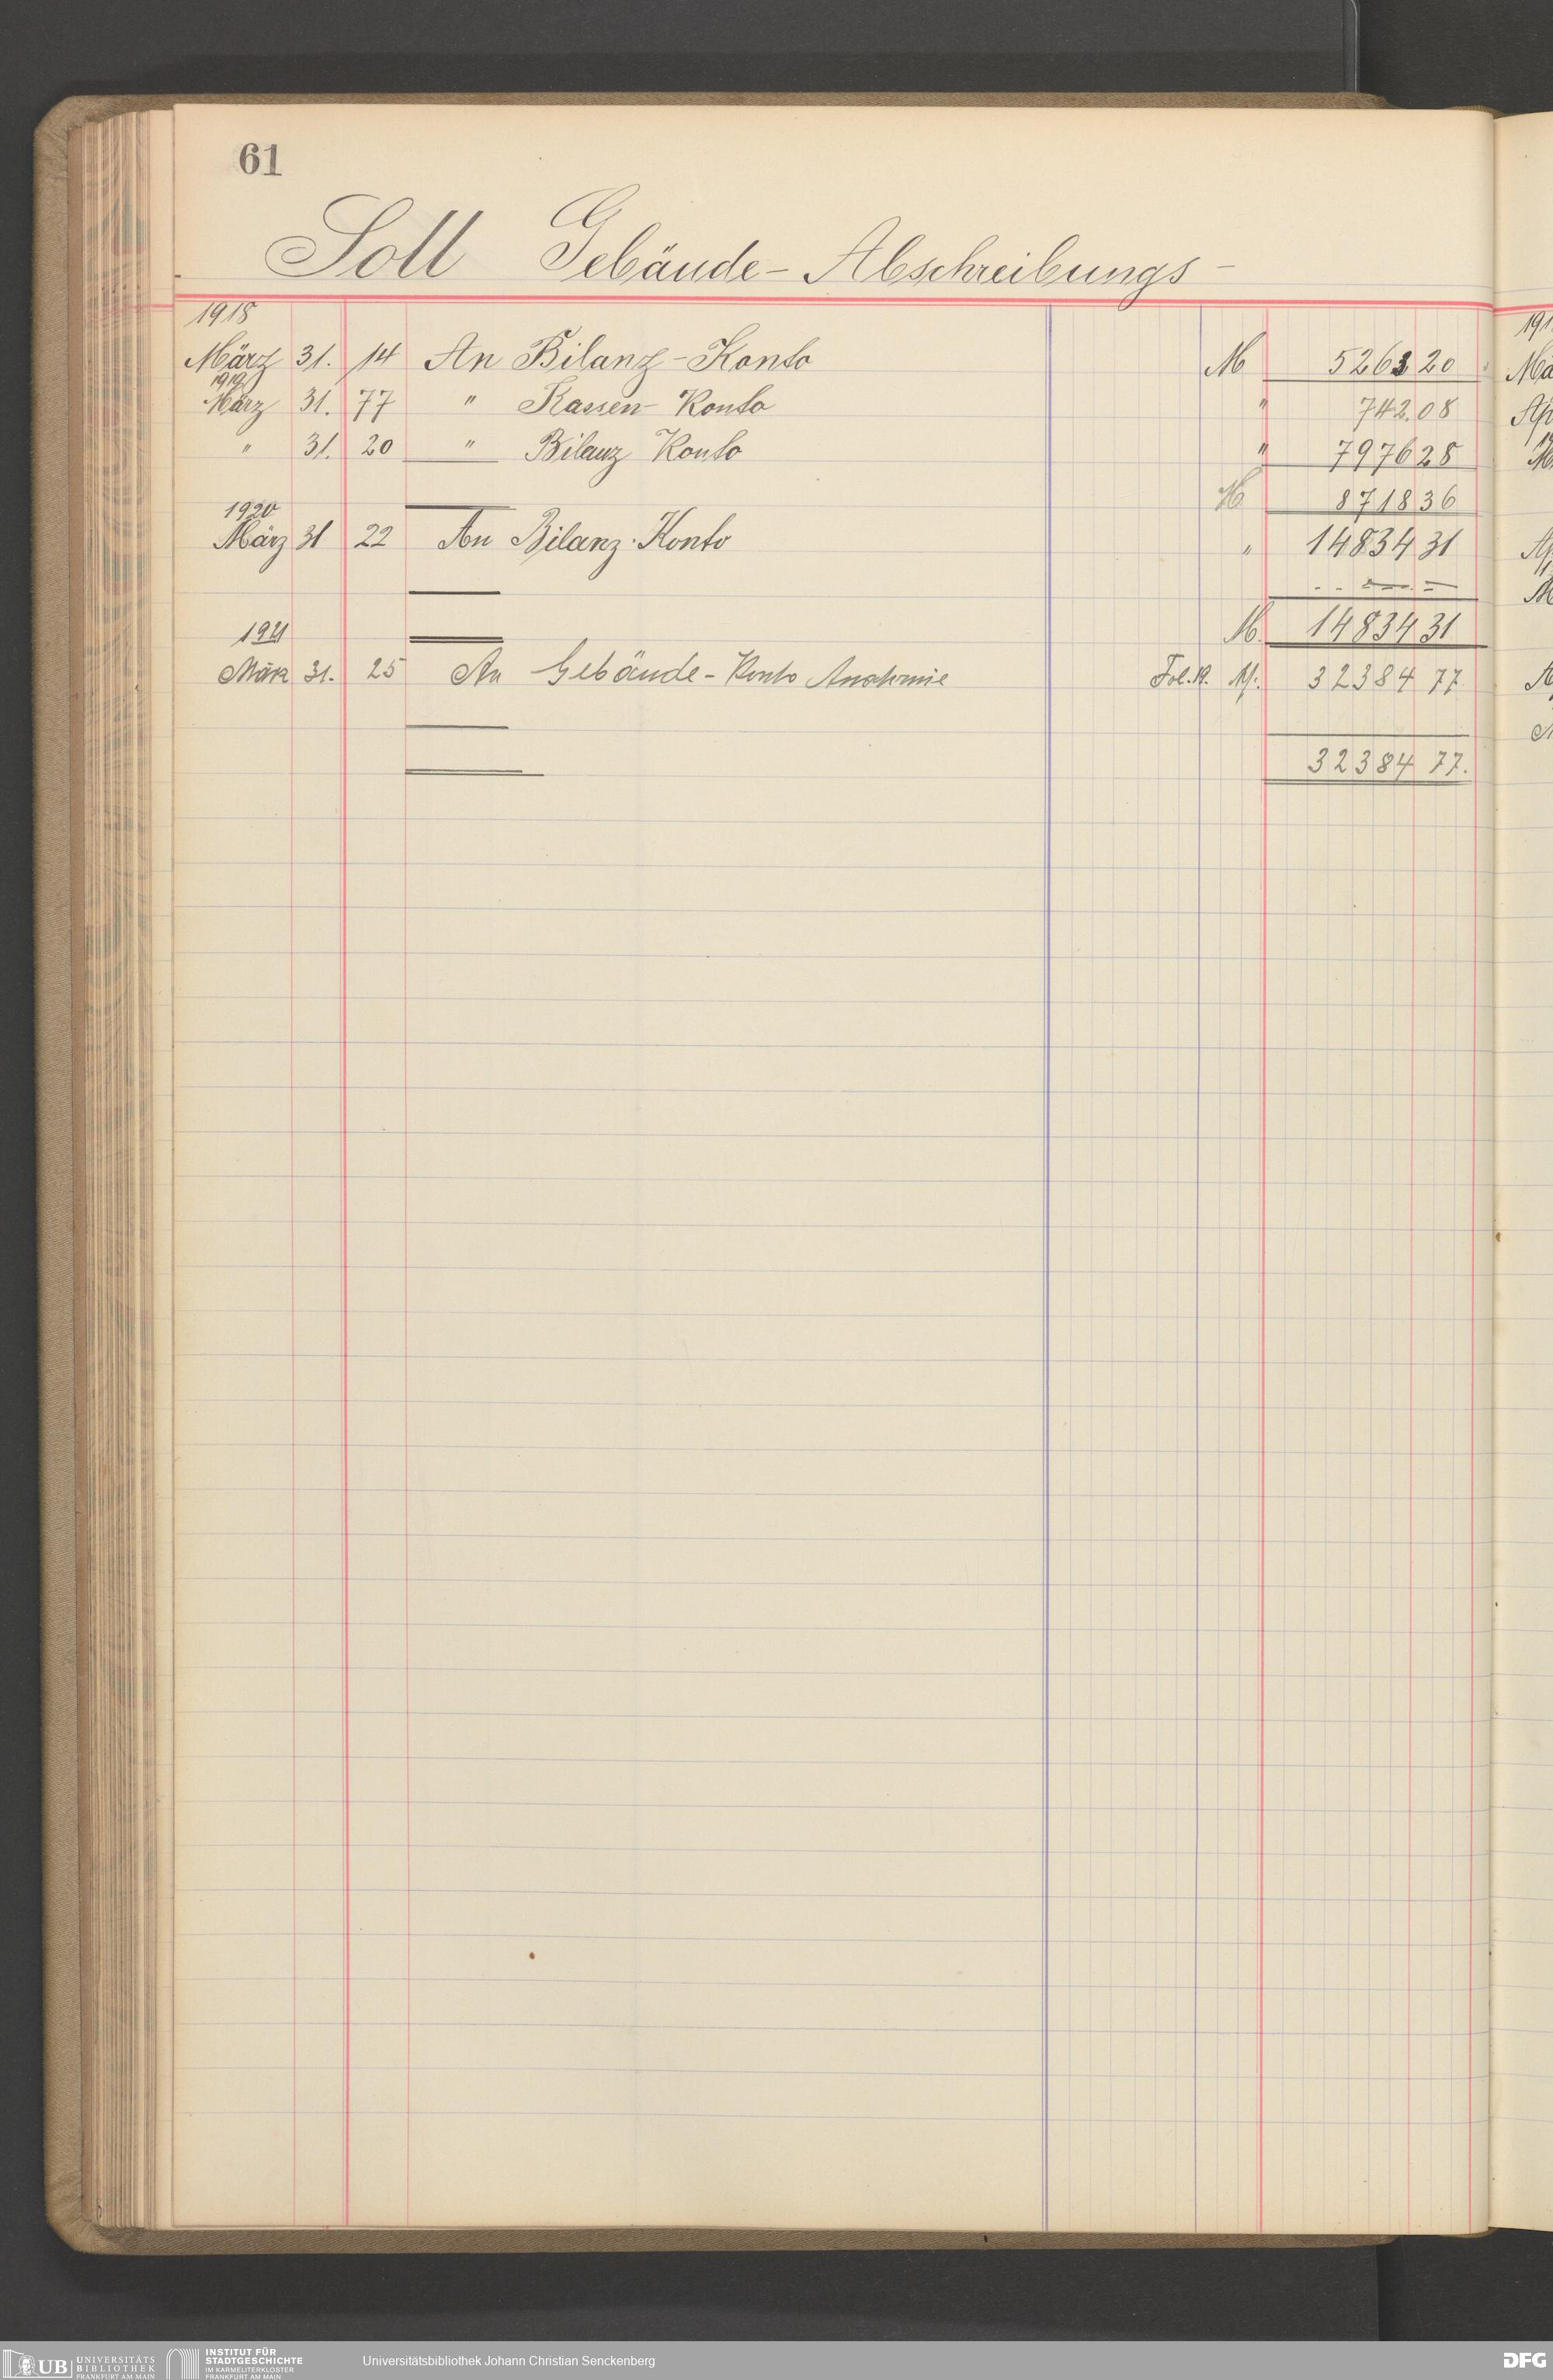 61
Soll Gebäude- Abschreibungs-
1918
März 31. 14 An Bilanz-Konto M 5263 20
1919
März 31. 77 " Kassen-Konto " 742.08
" 31. 20 " Bilanz Konto " 7976 28
M 8718 36
1920
März 31 22 An Bilanz-Konto " 14834 31
M. 14834 31
1921
März 31. 25 An Gebäude-Konto Anatomie Fol. 19. M. 32384 77
32384 77.
191
Mä
Ap
UB UNIVERSITÄTS BIBLIOTHEK FRANKFURT AM MAIN
INSTITUT FÜR STADTGESCHICHTE IM KARMELITERKLOSTER FRANKFURT AM MAIN
Universitätsbibliothek Johann Christian Senckenberg
DFG